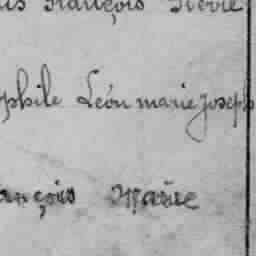 François Pierre
phile Léon marie joseph
ançois Marie